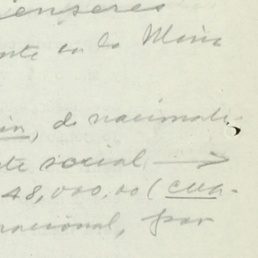 enseres
nte en la Mina
in, de nacionali-
te social →
48,000.00 (cua-
nacional, por